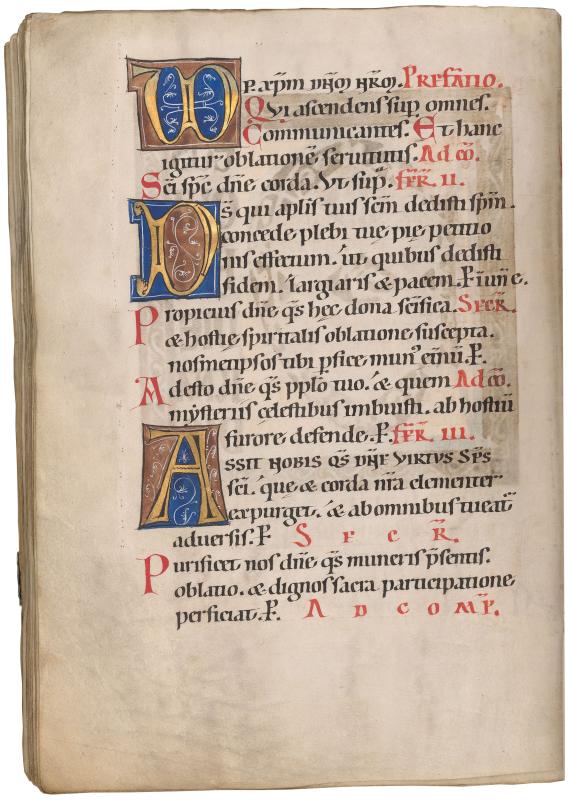 VD P. XP̄M DN̄M NR̄M. PREFATIO.
QVi ascendens sup̄ omnes.
Communicantes. Et hanc
igitur oblationē seruitutis. Ad cō.
Sc̄i sp̄c dn̄e corda. Vt sup̄. FR̄. II.
Ds̄ qui apl̄is tuis sc̄m dedisti sp̄m.
concede plebi tue pie petitio
nis effectum. ut quibus dedisti
fidem. largiaris & pacem. P̄. in un̄e.
Propicius dn̄e q̄s hec dona sc̄ifica. SECR̄.
& hostie spiritalis oblatione suscepta.
nosmetipsos tibi p̄fice mun᾽ et̄nū. P̄.
Adesto dn̄e q̄s ppl̄o tuo. & quem Ad cō.
mysteriis celestibus imbuisti. ab hostiū
furore defende. P̄. FR̄. III.
ASSIT NOBIS QS̄ DN̄E VIRTUS SPS̄
sc̄i. que & corda nr̄a clementer
expurget. & ab omnibus tueat᾽
aduersis. P̄ SECR̄.
Purificet nos dn̄e q̄s muneris p̄sentis.
oblatio. & dignos sacra participatione
perficiat. P̄. AD COMP̄.